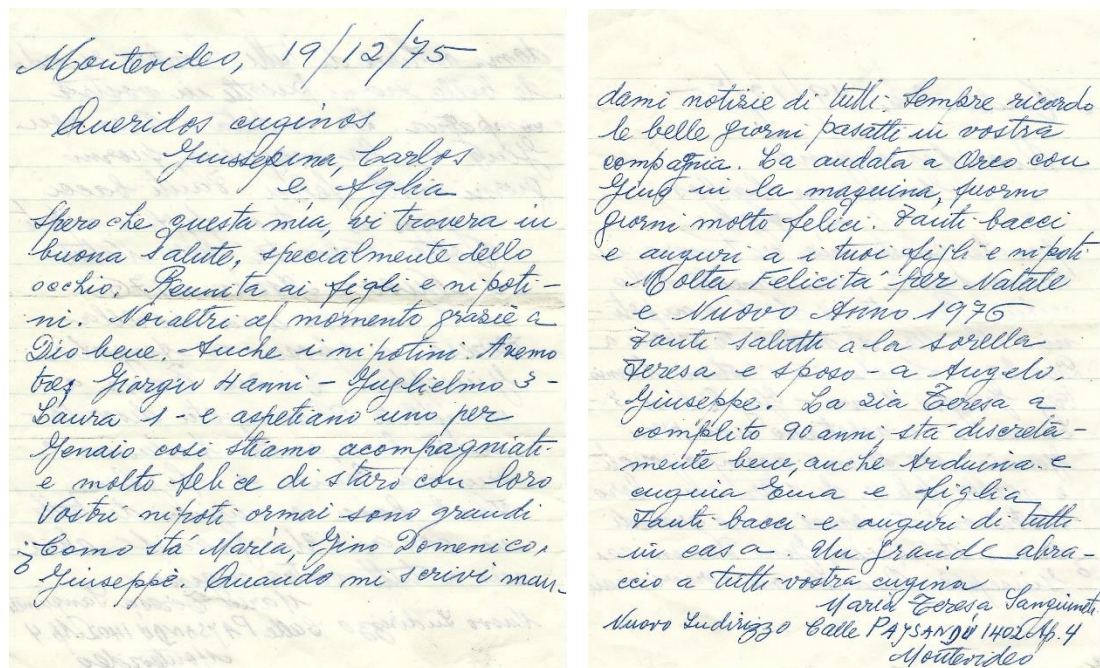 Montevideo, 19/12/75
Queridos cuginos
Giussepina, Carlos
e figlia
Spero che questa mia, vi trovera in
buona salute, specialmente dello
occhio. Reunita ai figli e nipoti-
ni. Noialtri al momento grazie a
Dio bene. Anche i nipotini Avemo
tres Giorgio 4 anni - Guglielmo 3 -
Laura 1 - e aspetiano uno per
Genaio cosi stiamo acompagniati
e molto felice di staro con loro
Vostri nipoti ormai sono grandi
¿Como stá María, Gino Domenico,
Giuseppe. Quando mi scrivi man-
dami notizie di tutti. Sempre ricordo
le belle giorni pasatti in vostra
compagnia. La andata a Orco con
Gino in la maquina, fuorno
giorni molto felici. Tanti bacci
e auguri a i tuoi figli e nipoti
Molta Felicitá per Natale
e Nuovo Anno 1976
Tanti salutti a la sorella
Teresa e sposo - a Angelo,
Giuseppe. La zia Teresa a
complito 90 anni, stá discreta-
mente bene, anche Arduina. e
cuguia Ema e figlia
Tanti bacci e auguri di tutti
in casa. Un grande abra-
ccio a tutti vostra cugina
Maria Teresa Sanguineti
Nuovo Indirizzo Calle PAYSANDÚ 1402 Ap. 4
Montevideo